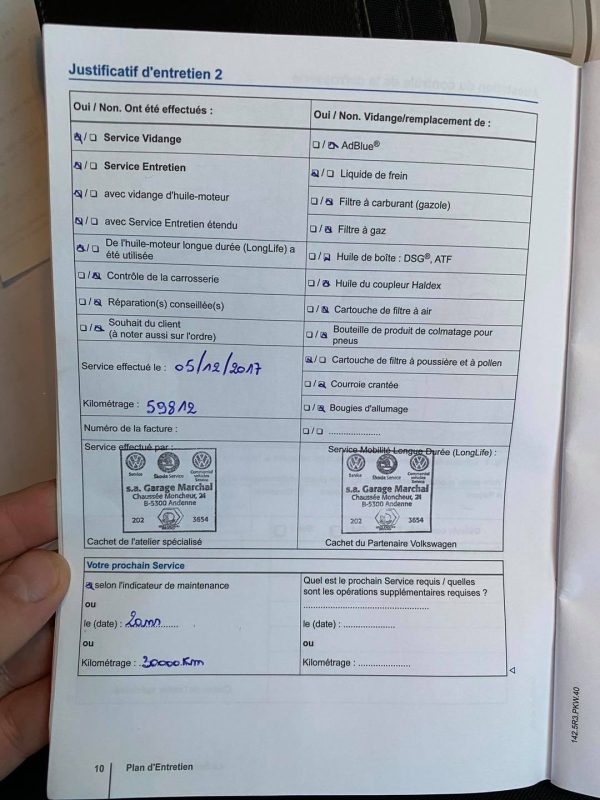 Justificatif d'entretien 2
Oui / Non. Ont été effectués :
☒/☐ Service Vidange
☒/☐ Service Entretien
☒/☐ avec vidange d'huile-moteur
☒/☐ avec Service Entretien étendu
☒/☐ De l'huile-moteur longue durée (LongLife) a
été utilisée
☐/☒ Contrôle de la carrosserie
☐/☒ Réparation(s) conseillée(s)
☐/☒ Souhait du client
(à noter aussi sur l'ordre)
Service effectué le : 05/12/2017
Kilométrage : 59812
Numéro de la facture :
Service effectué par :
Service
Škoda Service
Commercial
vehicles
Service
s.a. Garage Marchal
Chaussée Moncheur, 24
B-5300 Andenne
202 3654
Cachet de l'atelier spécialisé
Oui / Non. Vidange/remplacement de :
☐/☒ AdBlue®
☒/☐ Liquide de frein
☐/☒ Filtre à carburant (gazole)
☐/☒ Filtre à gaz
☐/☒ Huile de boîte : DSG®, ATF
☐/☒ Huile du coupleur Haldex
☐/☒ Cartouche de filtre à air
☐/☒ Bouteille de produit de colmatage pour
pneus
☒/☐ Cartouche de filtre à poussière et à pollen
☐/☒ Courroie crantée
☐/☒ Bougies d'allumage
☐/☐ ....................
Service Mobilité Longue Durée (LongLife) :
Service
Škoda Service
Commercial
vehicles
Service
s.a. Garage Marchal
Chaussée Moncheur, 24
B-5300 Andenne
202 3654
Cachet du Partenaire Volkswagen
Votre prochain Service
☒ selon l'indicateur de maintenance
ou
le (date) : 2ans
ou
Kilométrage : 30000Km
Quel est le prochain Service requis / quelles
sont les opérations supplémentaires requises ?
................................................
le (date) : ....................
ou
Kilométrage : ....................
10 Plan d'Entretien
142.5R3.PKW.40